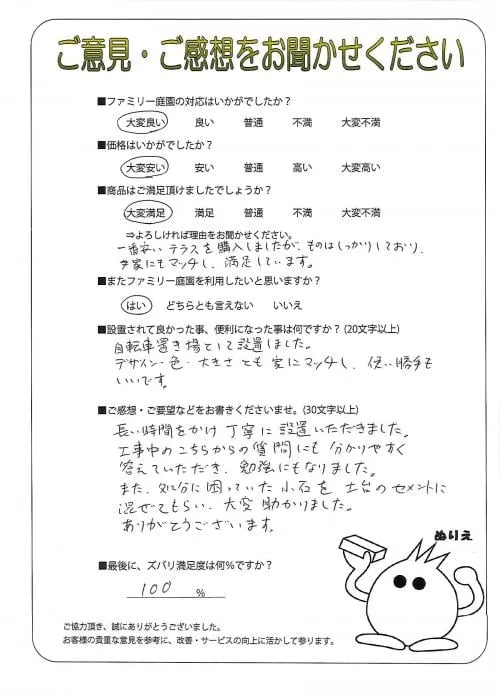 ご意見・ご感想をお聞かせください
■ファミリー庭園の対応はいかがでしたか？
大変良い 良い 普通 不満 大変不満
■価格はいかがでしたか？
大変安い 安い 普通 高い 大変高い
■商品はご満足頂けましたでしょうか？
大変満足 満足 普通 不満 大変不満
⇒よろしければ理由をお聞かせください。
一番安いテラスを購入しましたが、ものはしっかりしており、
家にもマッチし、満足しています。
■またファミリー庭園を利用したいと思いますか？
はい どちらとも言えない いいえ
■設置されて良かった事、便利になった事は何ですか？(20文字以上)
自転車置き場として設置しました。
デザイン・色・大きさとも家にマッチし、使い勝手も
いいです。
■ご感想・ご要望などをお書きくださいませ。(30文字以上)
長い時間をかけ丁寧に設置いただきました。
工事中のこちらからの質問にも分かりやすく
答えていただき、勉強にもなりました。
また、処分に困っていた小石を土台のセメントに
混ぜてもらい、大変助かりました。
ありがとうございます。
ぬりえ
■最後に、ズバリ満足度は何％ですか？
100 ％
ご協力頂き、誠にありがとうございました。
お客様の貴重な意見を参考に、改善・サービスの向上に活かして参ります。